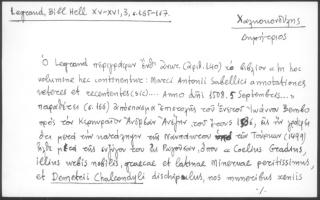 Legrand, Bibl Hell XV-XVI, 3, σ. 165-167.
Χαλκοκονδύλης
Δημήτριος
Ὁ Legrand περιγράφων ἐνθ' ἀνωτ. (ἀριθ. 140) τὸ βιβλίον «In hoc
volumine hec continentur: Marci Antonii Sabellici annotationes
veteres et recententes (sic).... Anno dñi 1508. 5 Septembris...»
παραθέτει (σ. 166) ἀπόσπασμα ἐπιστολῆς τοῦ Ἑνετοῦ Ἰωάννου Bembo
πρὸς τὸν Κερκυραῖον τοῦ ἔτους 1536, εἰς τὴν γράφει
ὅτι μετὰ τὴν κατάληψιν τῆς Ναυπάκτου ὑπὸ τῶν Τούρκων (1499)
ἦλθε μετὰ τῆς συζύγου του εἰς ὅπου ὁ «Coelius Gradus,
illius urbis nobilis, graecae et latinae Minervae peritissimus,
et Demetrii Chalcondyli discipulus, nos muneribus xeniis
·/·